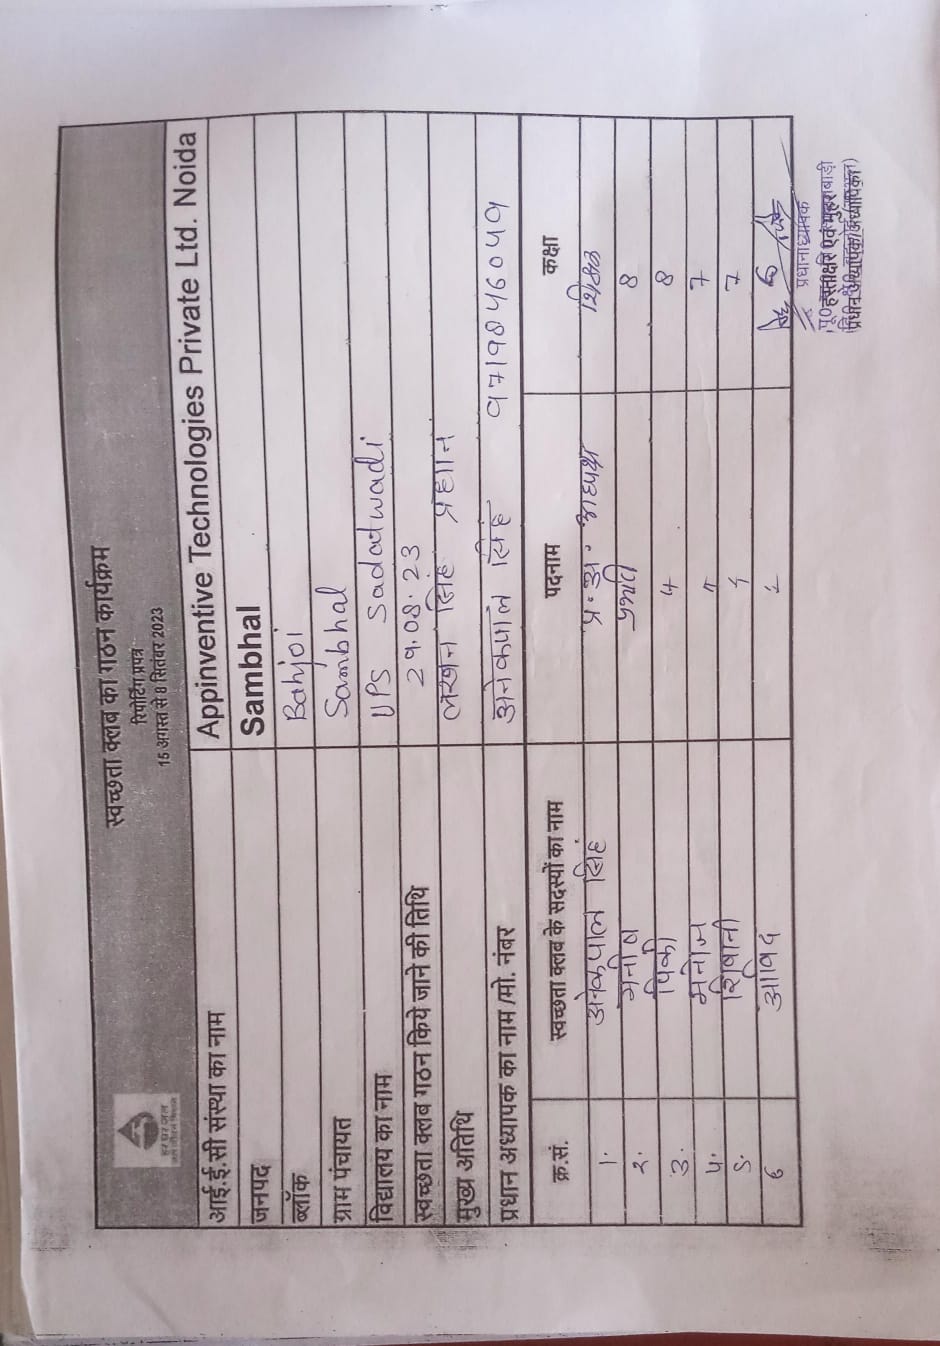 स्वच्छता क्लब का गठन कार्यक्रम
रिपोर्टिंग प्रपत्र
15 अगस्त से 8 सितंबर 2023
हर घर जल
जल जीवन मिशन
आई.ई.सी संस्था का नाम Appinventive Technologies Private Ltd. Noida
जनपद Sambhal
ब्लॉक Bahjoi
ग्राम पंचायत Sambhal
विद्यालय का नाम UPS Sadatwadi
स्वच्छता क्लब गठन किये जाने की तिथि 29.08.23
मुख्य अतिथि लखन सिंह प्रधान
प्रधान अध्यापक का नाम /मो. नंबर अनेकपाल सिंह 9719846049
क्र.सं. स्वच्छता क्लब के सदस्यों का नाम पदनाम कक्षा
1. अनेकपाल सिंह प्र.अ. अध्यक्ष शिक्षक
2. मनीष 8
3. पिंकी 8
4. मनोज 7
5. शिवानी 7
6
प्रधानाध्यापक
हस्ताक्षर एवं मुहर
(प्रधान अध्यापक/अध्यापिका)